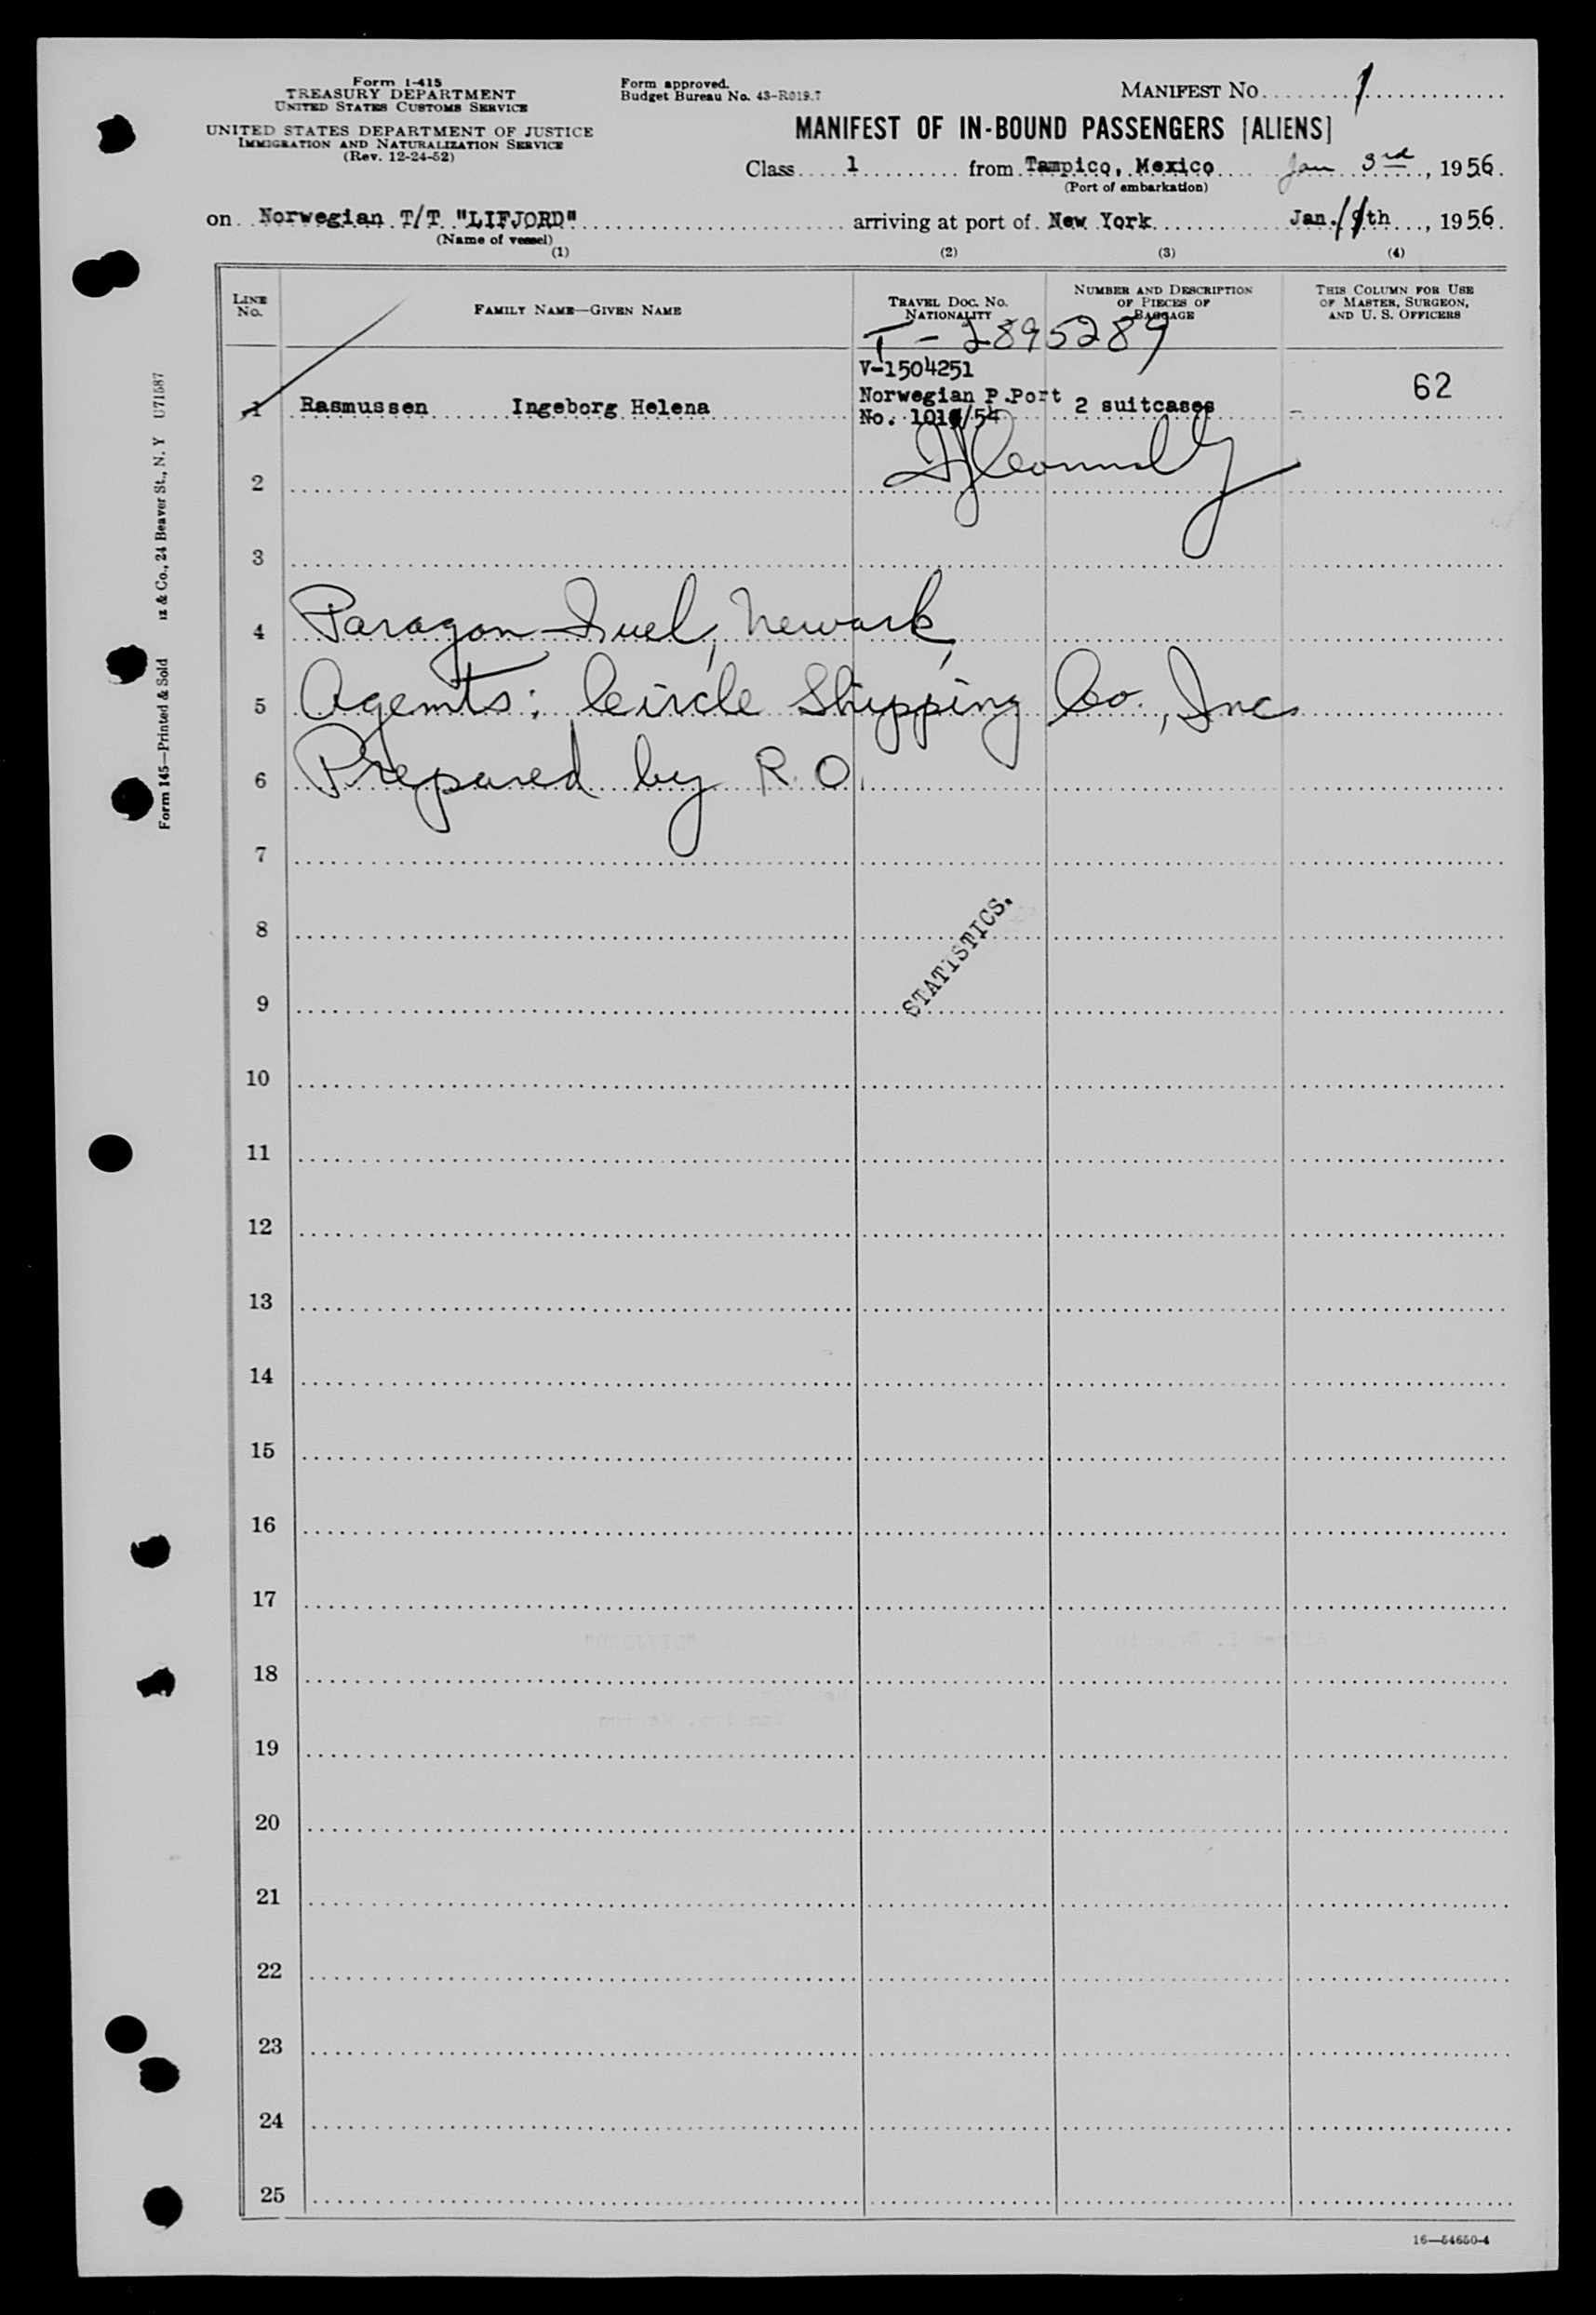 Form I-415
TREASURY DEPARTMENT
UNITED STATES CUSTOMS SERVICE
UNITED STATES DEPARTMENT OF JUSTICE
IMMIGRATION AND NATURALIZATION SERVICE
(Rev. 12-24-52)
Form approved.
Budget Bureau No. 43-R019.7
MANIFEST NO. 1
MANIFEST OF IN-BOUND PASSENGERS [ALIENS]
Class 1 from Tampico, Mexico Jan 3rd, 1956.
(Port of embarkation)
on Norwegian T/T "LIFJORD" arriving at port of New York Jan. th, 1956.
(Name of vessel)
(1) (2) (3) (4)
LINE NO.
FAMILY NAME—GIVEN NAME
TRAVEL DOC. NO. NATIONALITY
NUMBER AND DESCRIPTION OF PIECES OF BAGGAGE
THIS COLUMN FOR USE OF MASTER, SURGEON, AND U. S. OFFICERS
T-2895289
V-1504251
1 Rasmussen Ingeborg Helena Norwegian P.Port 2 suitcases 62
No.
2
3
4 Paragon Fuel, Newark,
5 Agents: Circle Shipping Co., Inc
6 Prepared by R.O.
7
8
STATISTICS.
9
10
11
12
13
14
15
16
17
18
19
20
21
22
23
24
25
16—54650-4
Form 145—Printed & Sold iz & Co., 24 Beaver St., N. Y U71587